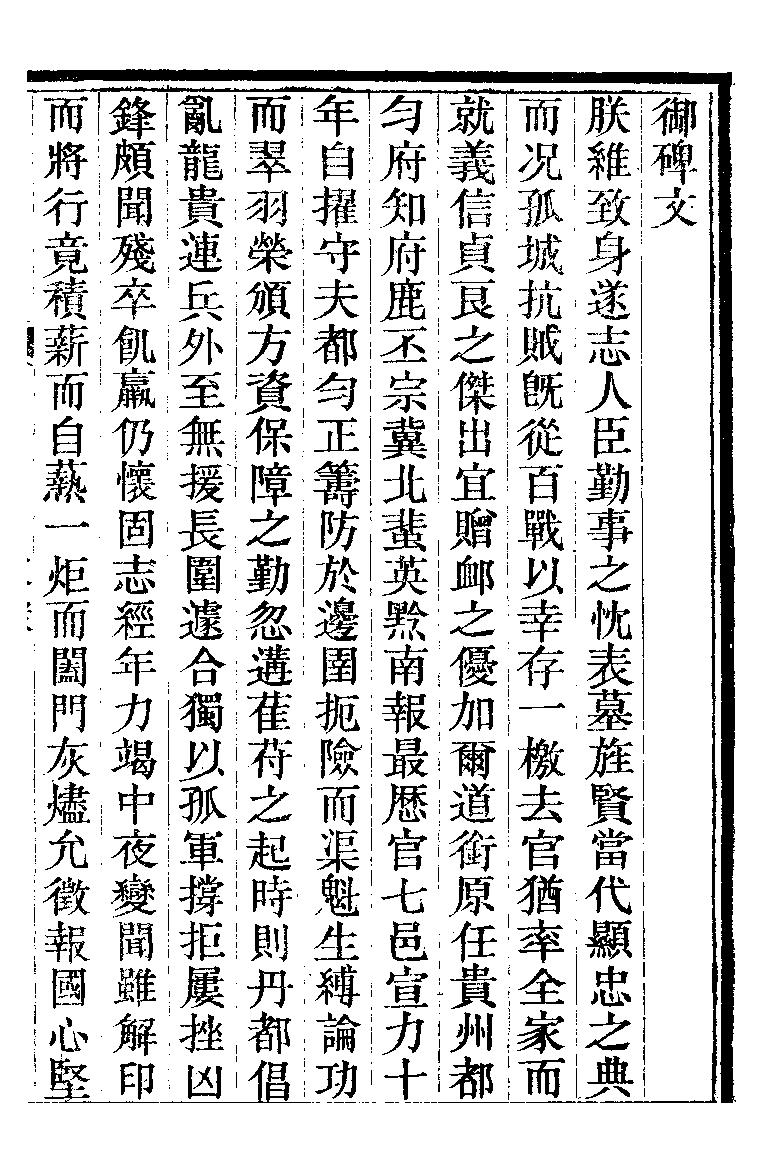 御碑文
朕維致身遂志人臣勤事之忱表墓旌賢當代顯忠之典
而况孤城抗賊旣從百戰以幸存一檄去官猶率全家而
就義信貞艮之傑出宜贈卹之優加爾道銜原任貴州都
匀府知府鹿丕宗冀北蜚英黔南報最歷官七邑宣力十
年自擢守夫都匀正籌防於邊圉扼險而渠魁生縛論功
而翠羽榮頒方資保障之勤忽遘萑苻之起時則丹都倡
亂龍貴連兵外至無援長圍遽合獨以孤軍撐拒屢挫凶
鋒頗聞殘卒飢羸仍懷固志經年力竭中夜變聞雖解印
而將行竟積薪而自爇一炬而闔門灰燼允徵報國心堅